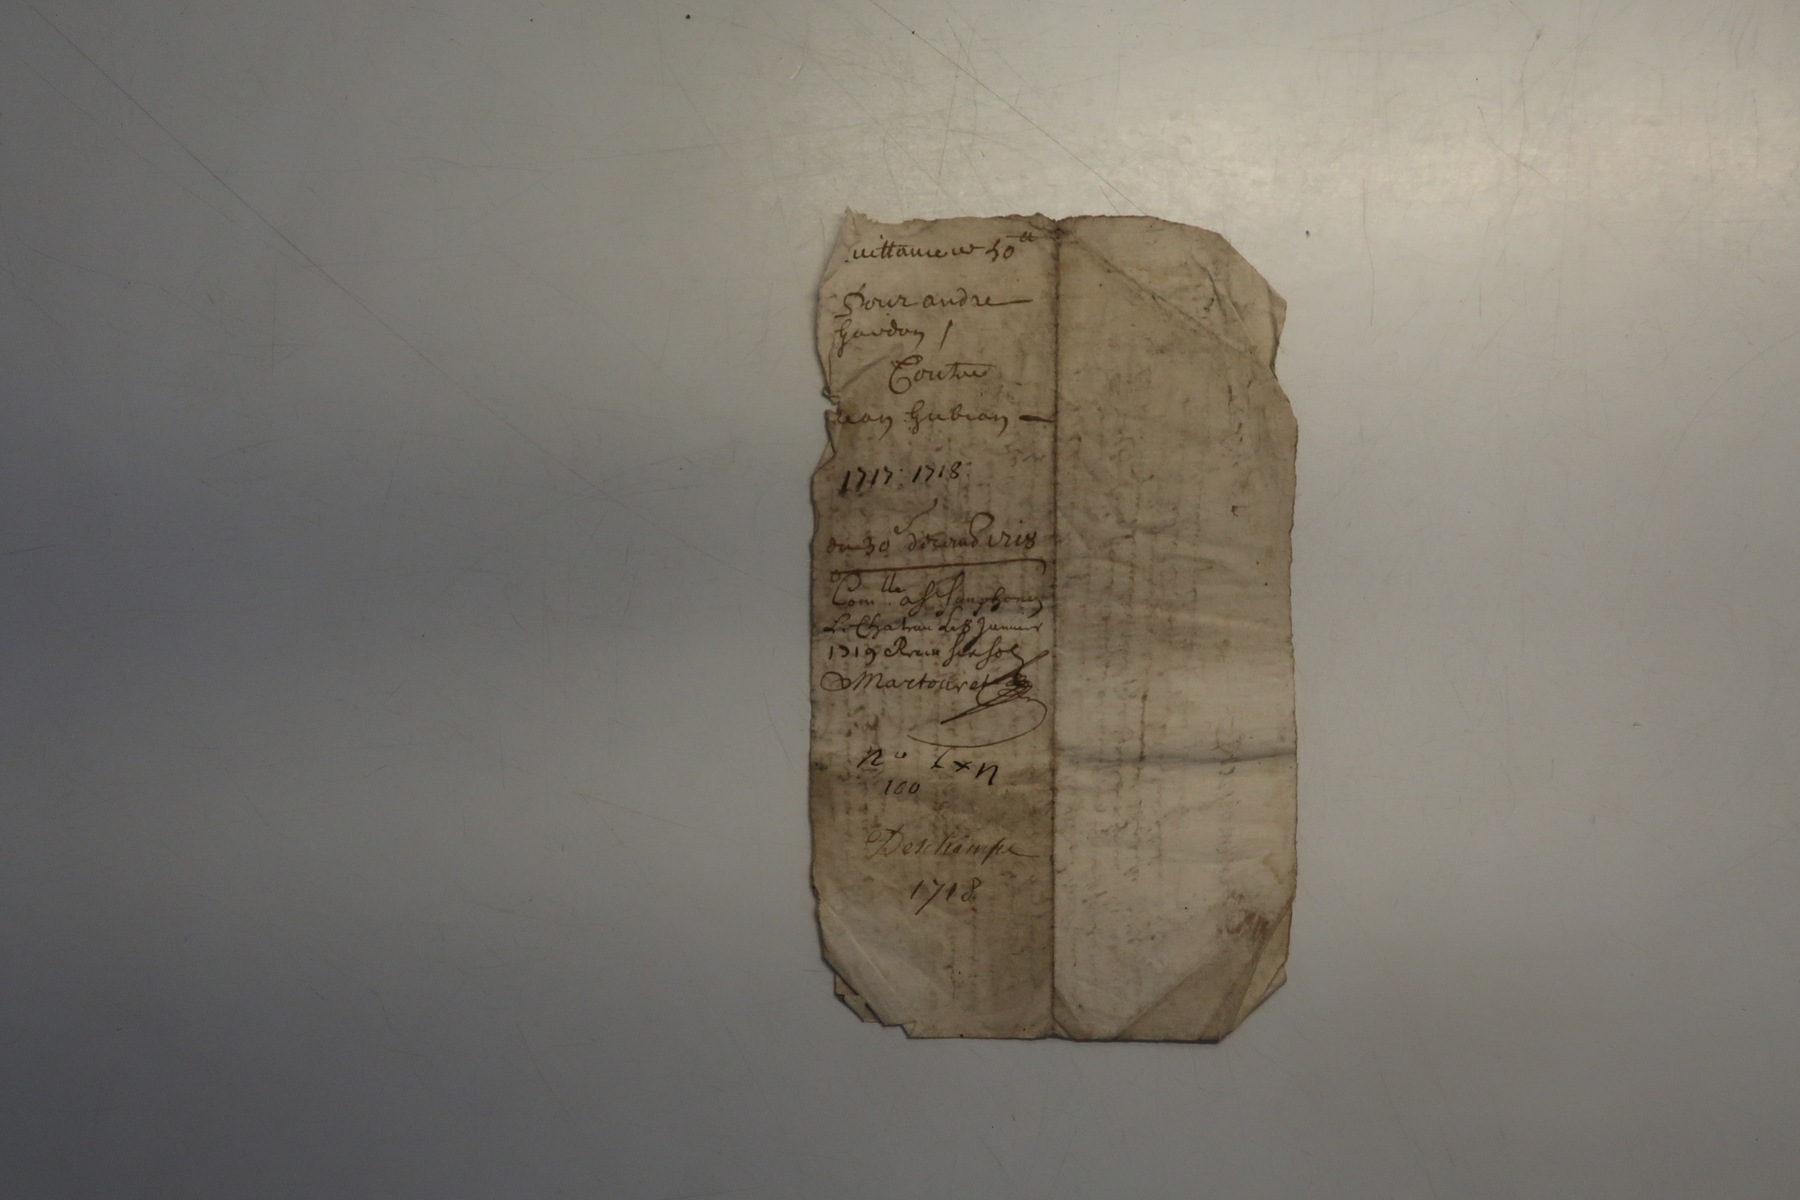 uittance de 50ᵗᵗ
Pour andre
Gardon /
Contre
Jean Gubian
1717: 1718
du 30ᵉ 1718
Conᵗˡˡᵉ a Sᵗ Simphorien
Le Chateau Le 8 Janvier
1719 Receu six sols
Martouret
nᵒ
100
Deschamps
1718